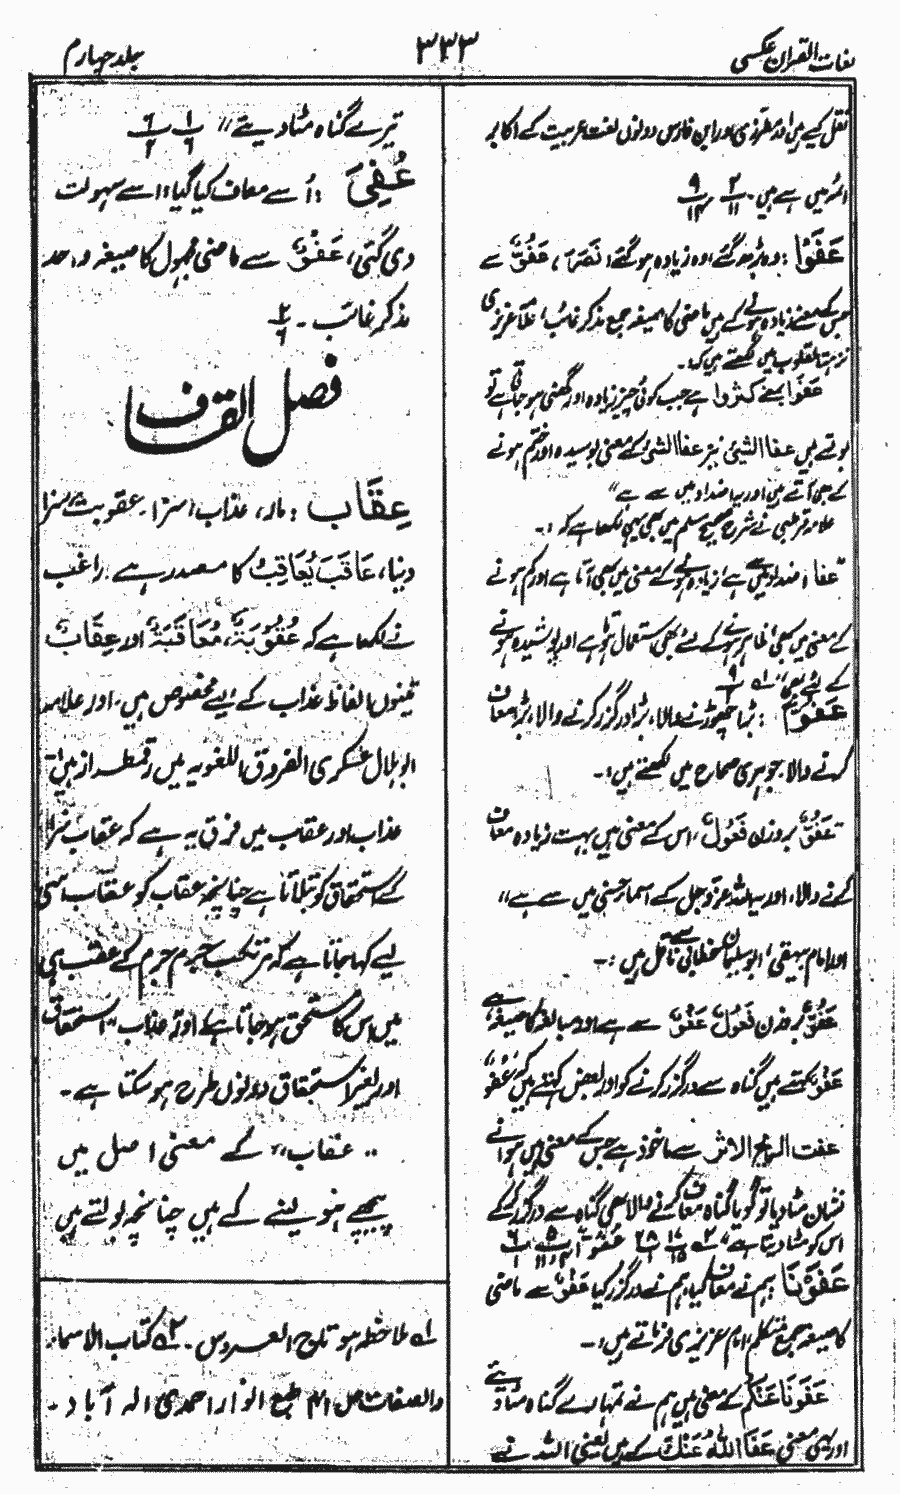 لغات القرآن عکسی
۳۳۳
جلد چہارم
نقل کیے ہیں اور مطرزی اور ابن فارس دونوں لغت عربیت کے اکابر
ائمہ میں سے ہیں۔
عَفَوْا: وہ بڑھ گئے، وہ زیادہ ہو گئے، (نَصَرَ)، عَفْوٌ سے
جس کے معنے زیادہ ہونے کے ہیں ماضی کا صیغہ جمع مذکر غائب، علامہ عزیزی
نزہۃ القلوب میں لکھتے ہیں کہ۔
عَفَوا بمعنے کثروا ہے جب کوئی چیز زیادہ اور گھنی ہو جاتی ہے تو
بولتے ہیں عفا الشیئ نیز عفا الشئ کے معنی بوسیدہ اور ختم ہونے
کے بھی آتے ہیں اور یہ اضداد میں سے ہے"
علامہ قرطبی نے شرح صحیح مسلم میں بھی یہی لکھا ہے کہ :-
"عفا اضداد میں سے ہے، زیادہ ہونے کے معنی میں بھی آتا ہے اور کم ہونے
کے معنی میں بھی، ظاہر ہونے کے لئے بھی استعمال ہوتا ہے اور پوشیدہ ہونے
کے لئے بھی"
عَفُوٌّ : بڑا چھوڑنے والا، بڑا درگزر کرنے والا، بڑا معاف
کرنے والا۔ جوہری صحاح میں لکھتے ہیں :-
"عَفُوٌّ بروزن فَعُولٌ، اس کے معنی ہیں بہت زیادہ معاف
کرنے والا، اور یہ اللہ عز و جل کے اسماء حسنی میں سے ہے"
اور امام بیہقی، ابو سلیمان خطابی سے ناقل ہیں :-
عَفُوٌّ بروزن فَعُولٌ عَفْوٌ سے ہے اور مبالغہ کا صیغہ ہے
عَفْوٌ کہتے ہیں گناہ سے درگزر کرنے کو اور بعض کہتے ہیں کہ عَفُوّ
عفت الریح الاثر سے ماخوذ ہے جس کے معنی ہیں ہوا نے
نشان مٹا دیا تو گویا گناہ معاف کرنے والا بھی گناہ سے درگزر کر کے
اس کو مٹا دیتا ہے"
عَفَوْنَا : ہم نے معاف کیا، ہم نے درگزر کیا عَفْوٌ سے ماضی
کا صیغہ جمع متکلم، امام عزیزی فرماتے ہیں :-
عَفَونَا عَنْكُمْ کے معنی ہیں ہم نے تمہارے گناہ مٹا دیئے
اور یہی معنی عَفَا اللہُ عَنْكَ کے ہیں یعنی اللہ نے
تیرے گناہ مٹا دیئے"
عُفِيَ : اُسے معاف کیا گیا، اسے سہولت
دی گئی، عَفْوٌ سے ماضی مجہول کا صیغہ واحد
مذکر غائب۔
فصل القاف
عِقَابِ : مار، عذاب، سزا۔ عقوبت، سزا
دینا، عَاقَبَ یُعَاقِبُ کا مصدر ہے۔ راغب
نے لکھا ہے کہ عُقُوْبَةٌ، مُعَاقَبَةٌ اور عِقَابٌ
تینوں الفاظ عذاب کے لیے مخصوص ہیں، اور علامہ
ابو ہلال عسکری الفروق اللغویہ میں رقمطراز ہیں :-
عذاب اور عقاب میں فرق یہ ہے کہ عقاب سزا
کے استحقاق کو بتلاتا ہے چنانچہ عقاب کو عقاب اسی
لیے کہا جاتا ہے کہ مرتکب جرم جرم کے عقب ہی
میں اس کا مستحق ہو جاتا ہے اور عذاب استحقاق
اور بغیر استحقاق دونوں طرح ہو سکتا ہے۔
"عقاب" کے معنی اصل میں
پیچھے ہو لینے کے ہیں چنانچہ بولتے ہیں
لہ ملاحظہ ہو تاج العروس۔ ۲ کتاب الاسماء
والصفات ص ۴۱ طبع انوار احمدی الہ آباد۔